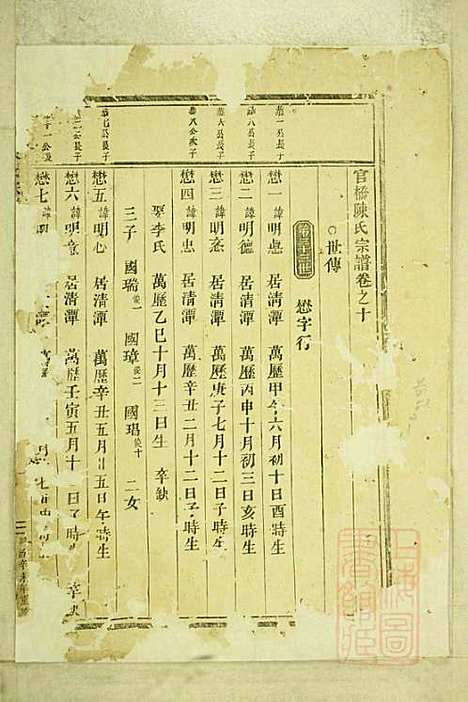 官橋陳氏宗譜卷之十
世傳
懋字行
恭一公長子
懋一 諱明 居清潭 萬歷甲午六月初十日酉時生
恭八公長子
懋二 諱明德 居清潭 萬歷丙申十月初三日亥時生
恭六公長子
懋三 諱明 居清潭 萬歷庚子七月十二日子時生
恭八公次子
懋四 諱明忠 居清潭 萬歷辛丑二月十二日子時生
娶李氏 萬歷乙巳十月十三日生 卒缺
三子 國瑞 國璋 國琩 二女
恭七公長子
懋五 諱明心 居清潭 萬歷辛丑五月廿五日午時生
公長子
懋六 諱明 居清潭 萬歷壬寅五月十 日子時生 卒
懋七 諱明
上海圖書館藏